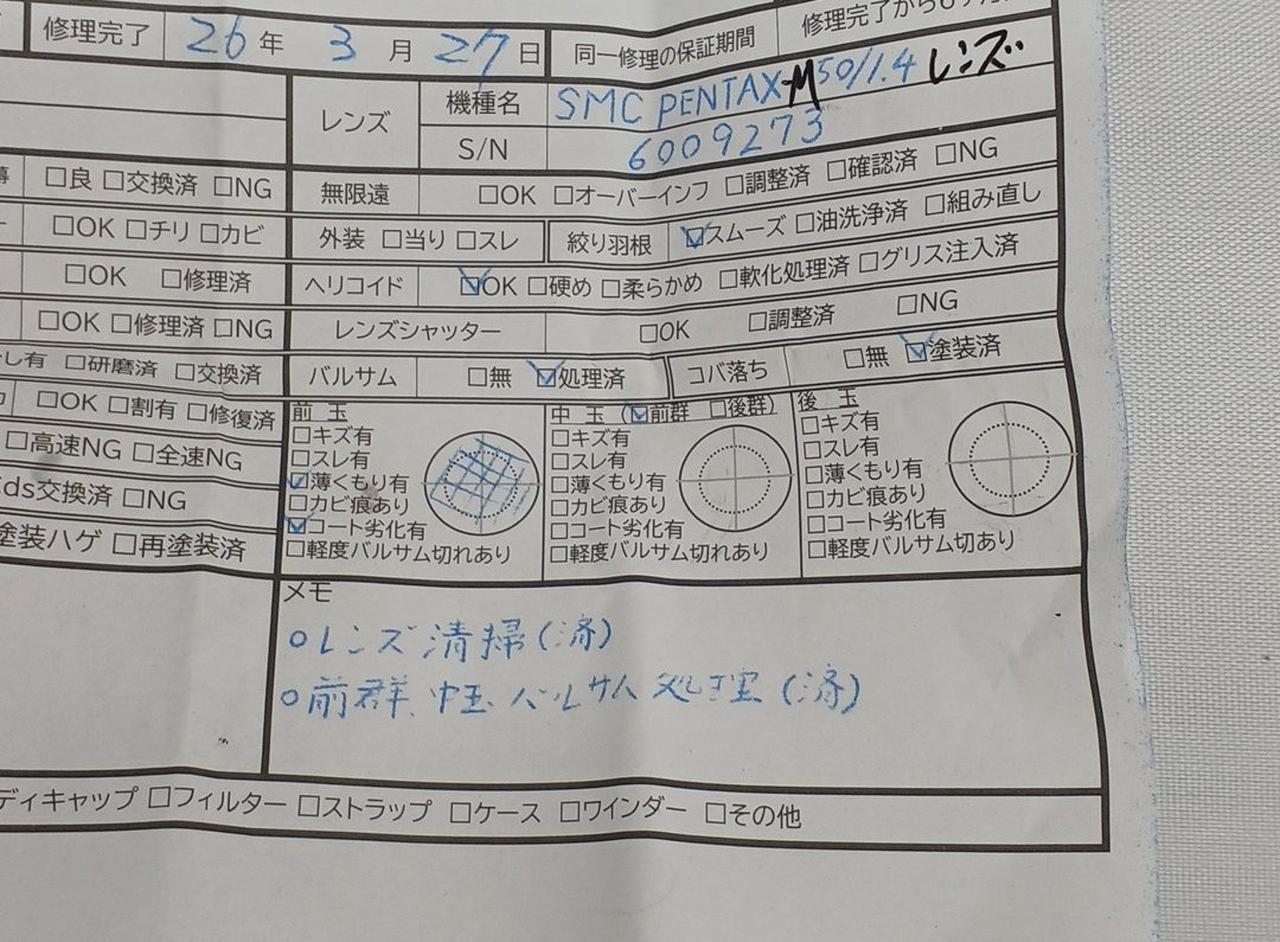 修理完了 26年 3月 27日 同一修理の保証期間 修理完了から6ヶ月
レンズ 機種名 SMC PENTAX-M 50/1.4 レンズ
S/N 6009273
□良 □交換済 □NG 無限遠 □OK □オーバーインフ □調整済 □確認済 □NG
□OK □チリ □カビ 外装 □当り □スレ 絞り羽根 ☑スムーズ □油洗浄済 □組み直し
□OK □修理済 ヘリコイド ☑OK □硬め □柔らかめ □軟化処理済 □グリス注入済
□OK □修理済 □NG レンズシャッター □OK □調整済 □NG
し有 □研磨済 □交換済 バルサム □無 ☑処理済 コバ落ち □無 ☑塗装済
□OK □割有 □修復済
□高速NG □全速NG
ds交換済 □NG
塗装ハゲ □再塗装済
前 玉
□キズ有
□スレ有
☑薄くもり有
□カビ痕あり
☑コート劣化有
□軽度バルサム切れあり
中 玉 (☑前群 □後群)
□キズ有
□スレ有
□薄くもり有
□カビ痕あり
□コート劣化有
□軽度バルサム切れあり
後 玉
□キズ有
□スレ有
□薄くもり有
□カビ痕あり
□コート劣化有
□軽度バルサム切あり
メモ
○レンズ清掃(済)
○前群、中玉バルサム処理(済)
ディキャップ □フィルター □ストラップ □ケース □ワインダー □その他